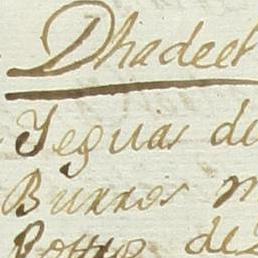 Dhadeet
Yeguas de
Burros m
Potros de 2